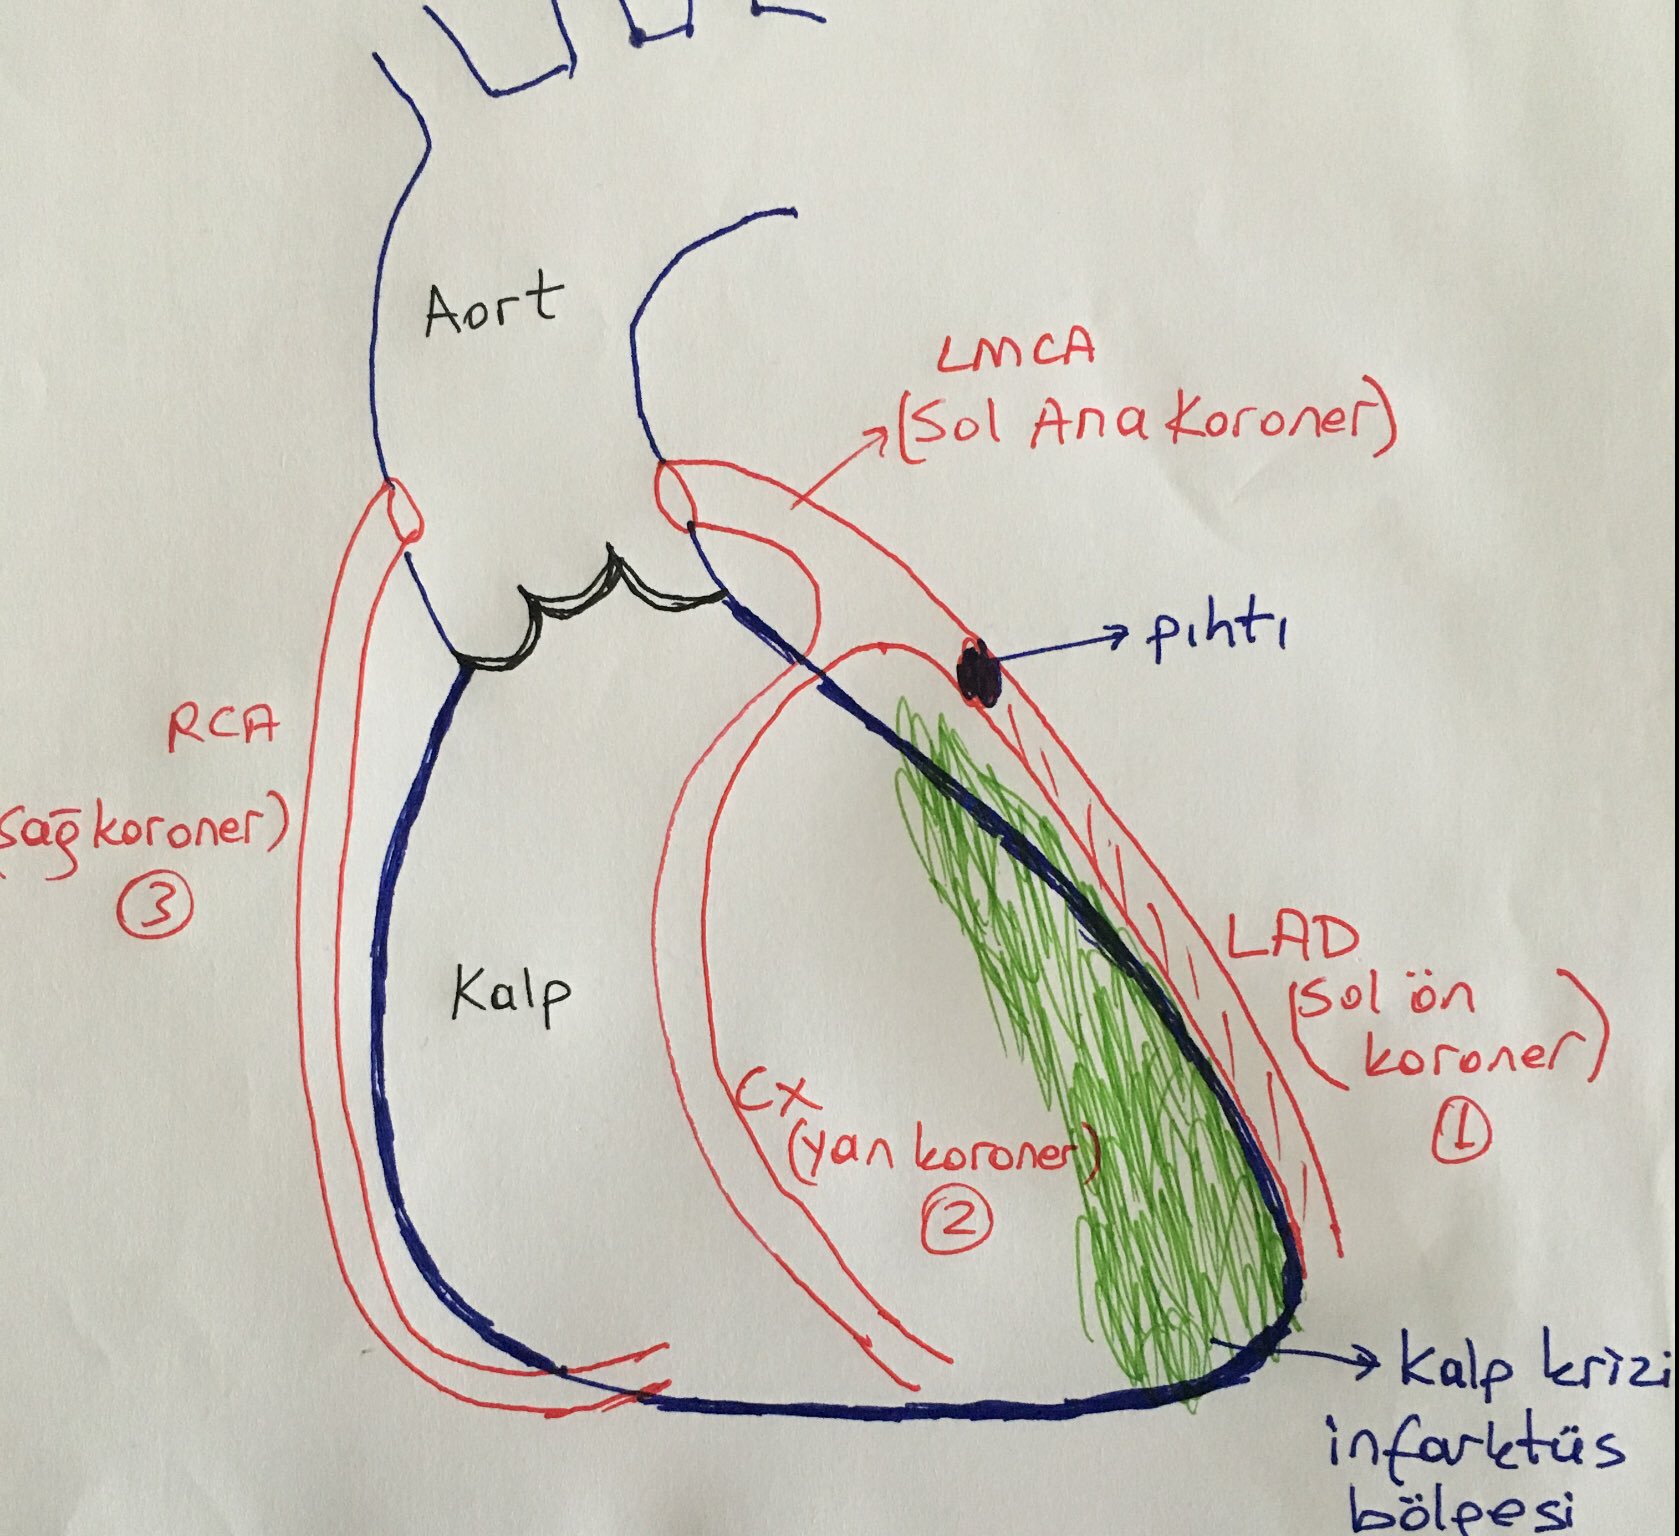 Aort
LMCA
(Sol Ana Koroner)
pıhtı
RCA
(Sağ koroner)
3
Kalp
LAD
(Sol ön
koroner)
1
CX
(yan koroner)
2
Kalp krizi
infarktüs
bölgesi